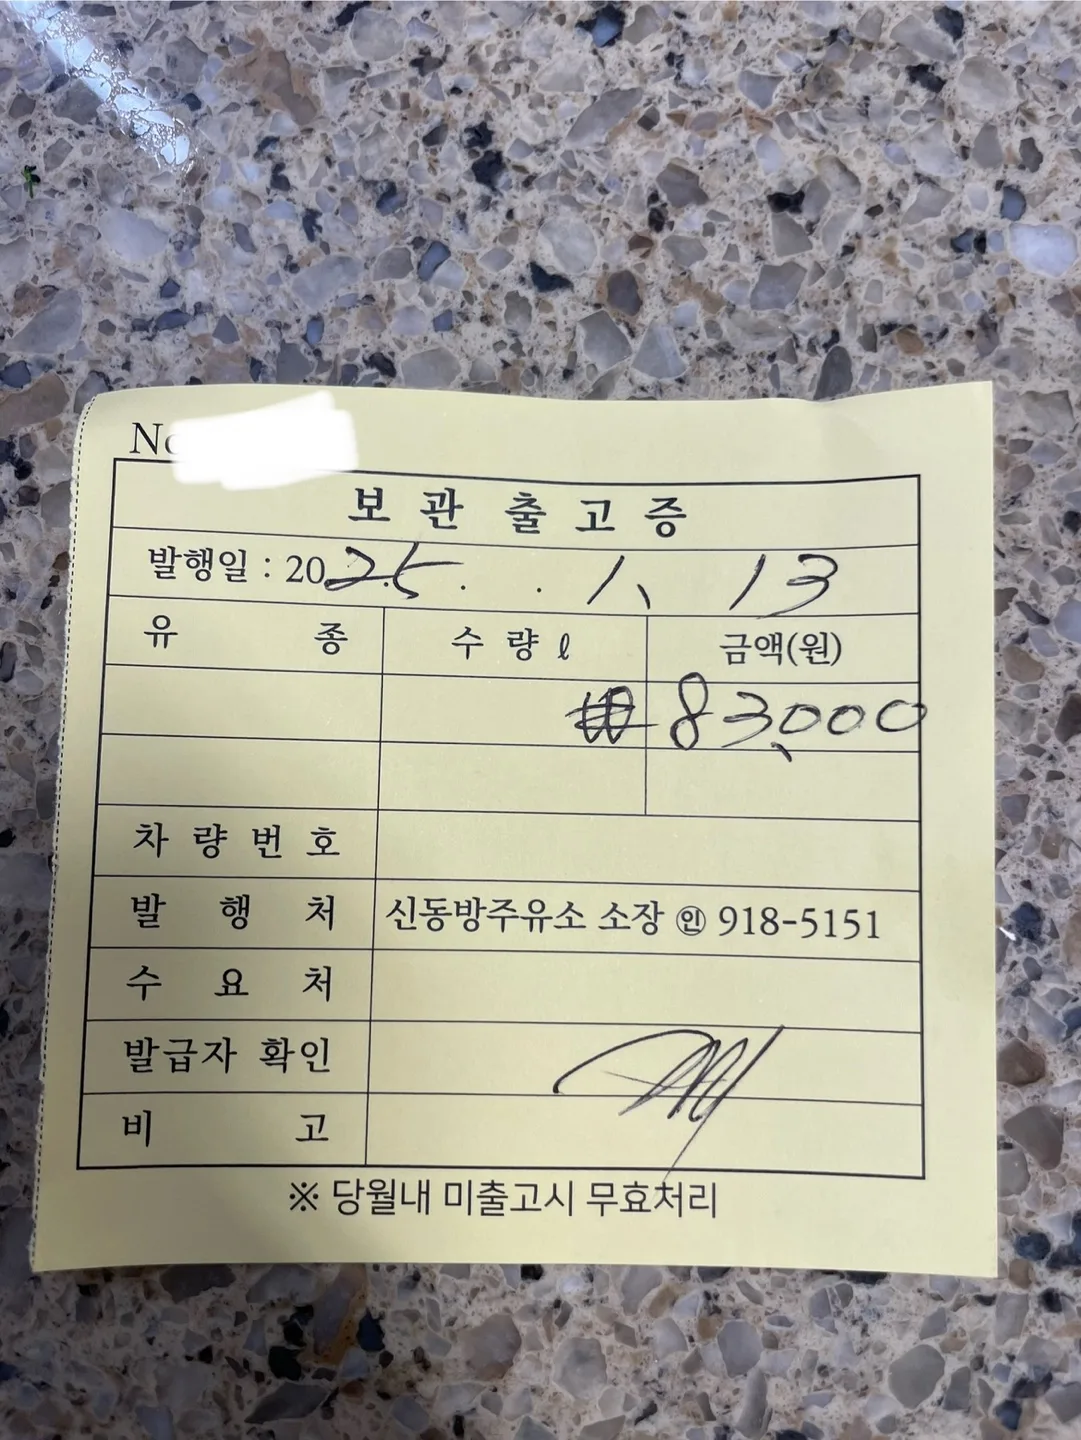 No
보관출고증
발행일 : 2025. . 1. 13
유 종 수량ℓ 금액(원)
₩83,000
차량번호
발행처 신동방주유소 소장 ㊞ 918-5151
수요처
발급자 확인
비고
※ 당월내 미출고시 무효처리